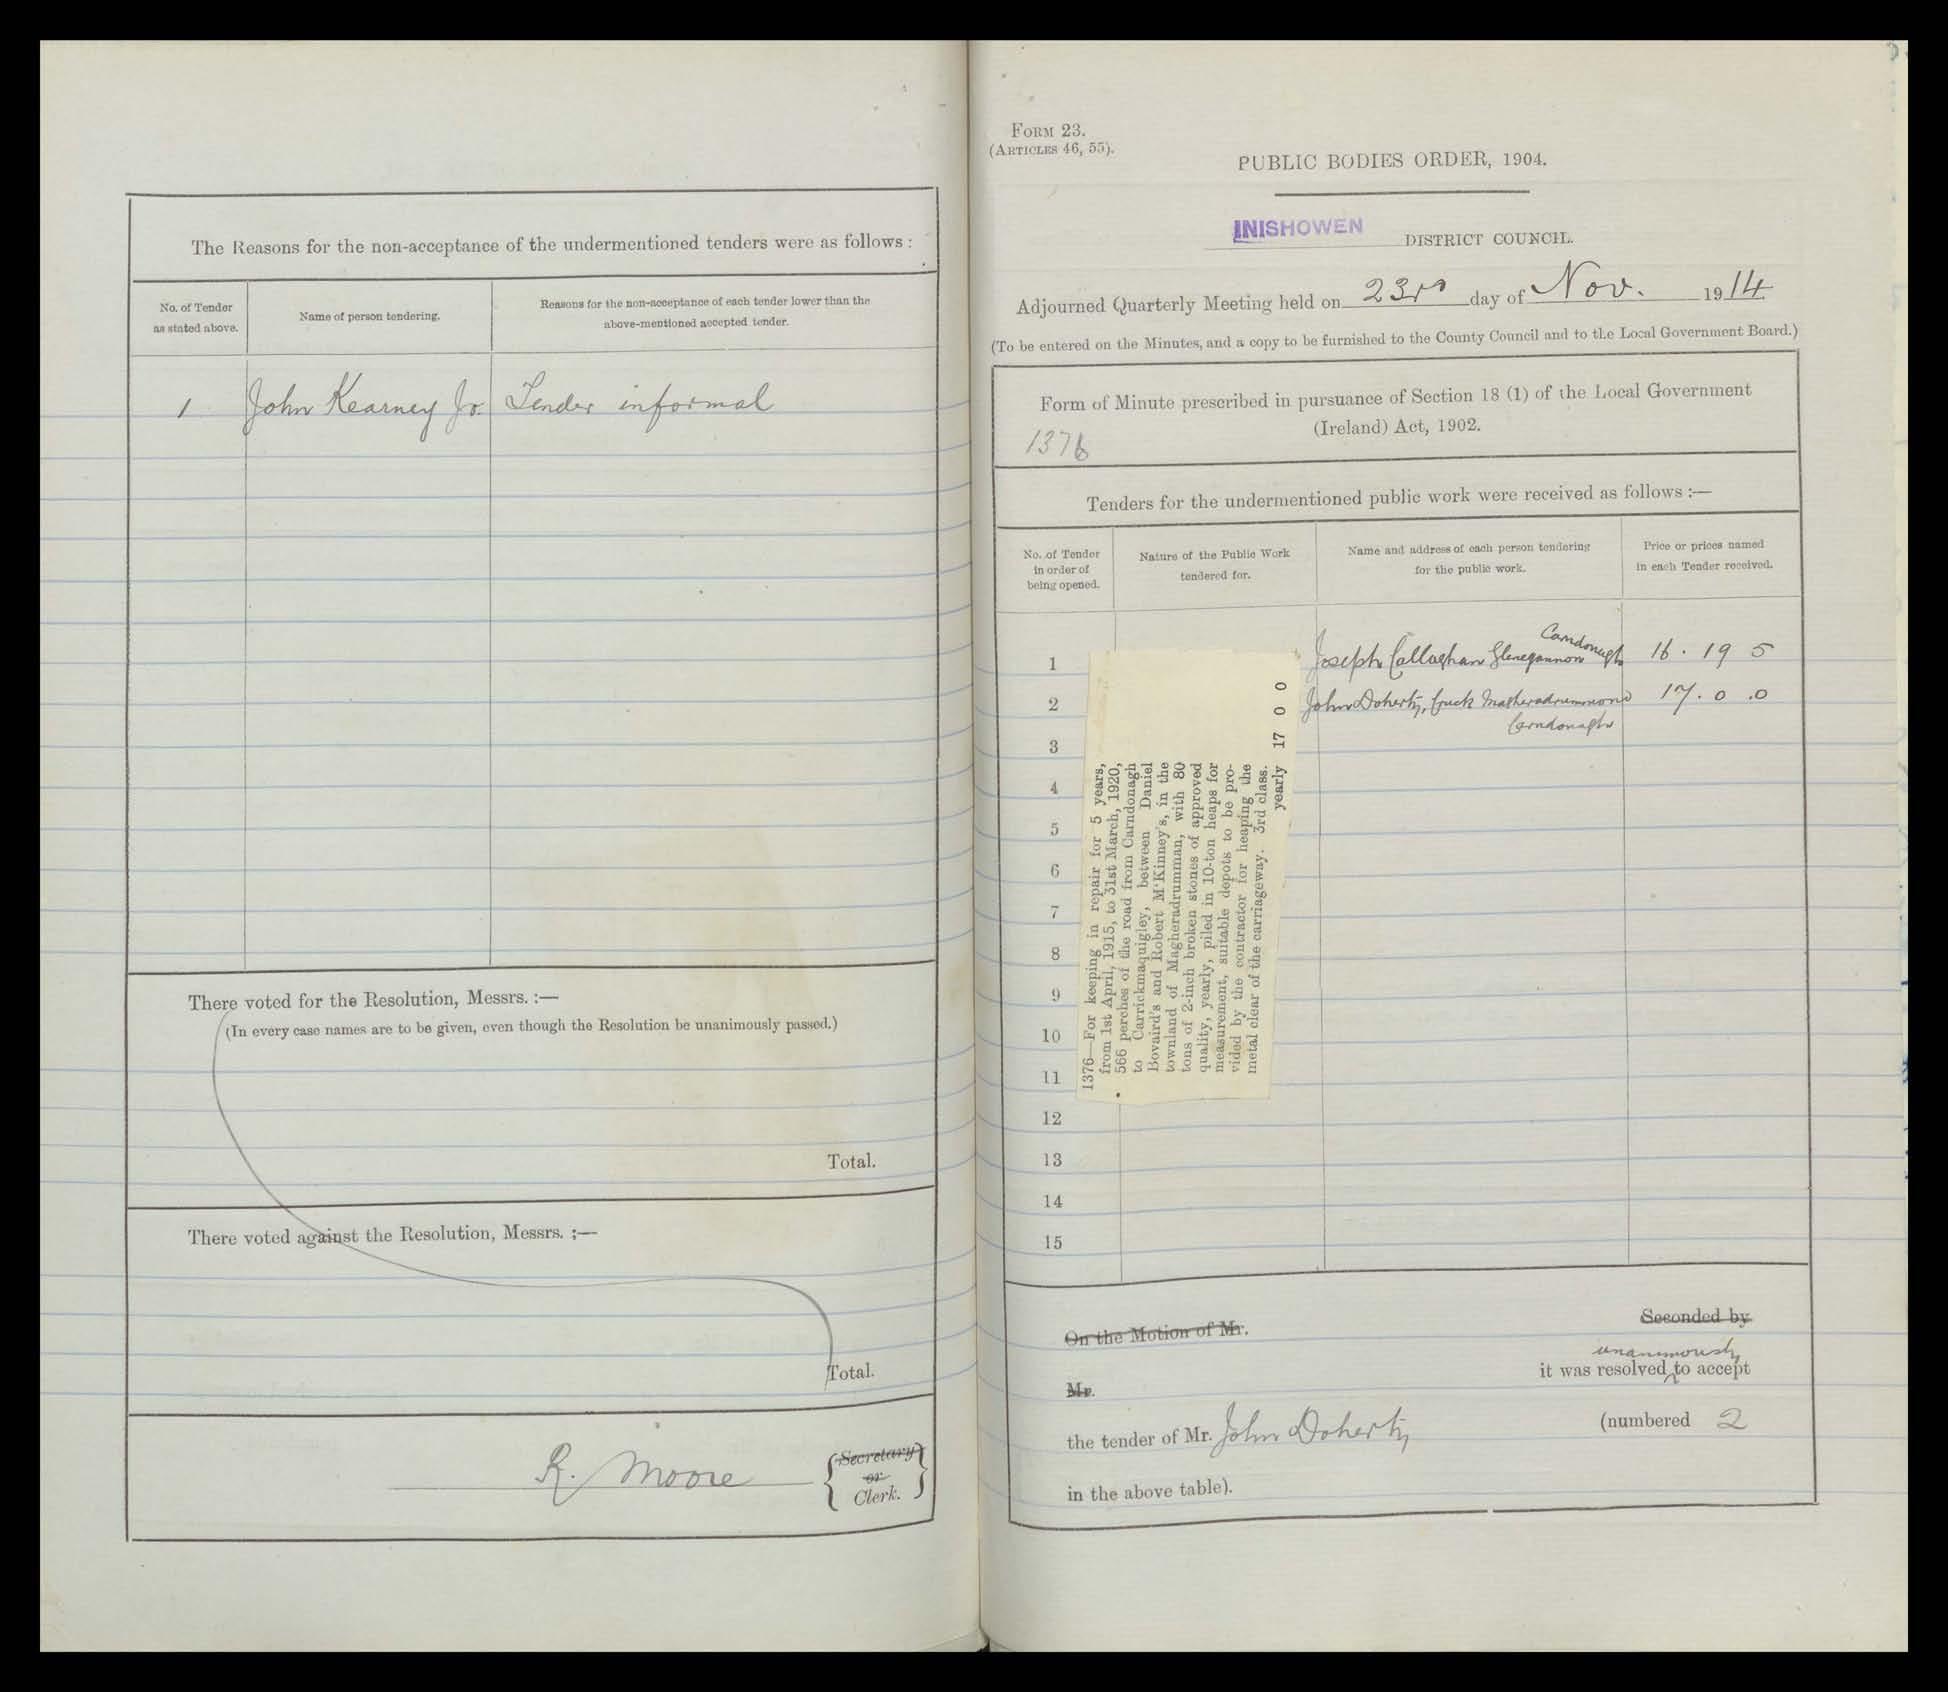 The Reasons for the non-acceptance of the undermentioned tenders were as follows :
No. of Tender
as stated above.
Name of person tendering.
Reasons for the non-acceptance of each tender lower than the
above-mentioned accepted tender.
1 John Kearney Jr. Tender informal
There voted for the Resolution, Messrs. :—
(In every case names are to be given, even though the Resolution be unanimously passed.)
Total.
There voted against the Resolution, Messrs. :—
Total.
R. Moore
Secretary
or
Clerk.
FORM 23.
(ARTICLES 46, 55).
PUBLIC BODIES ORDER, 1904.
INISHOWEN DISTRICT COUNCIL.
Adjourned Quarterly Meeting held on 23rd day of Nov. 1914
(To be entered on the Minutes, and a copy to be furnished to the County Council and to the Local Government Board.)
Form of Minute prescribed in pursuance of Section 18 (1) of the Local Government
(Ireland) Act, 1902.
1376
Tenders for the undermentioned public work were received as follows :—
No. of Tender
in order of
being opened.
Nature of the Public Work
tendered for.
Name and address of each person tendering
for the public work.
Price or prices named
in each Tender received.
Carndonagh
1 Joseph Callaghan Glenegannon 16 . 19 5
2 John Doherty, Magheradrummond 17 . 0 . 0
Carndonagh
3
4
5
6
7
8
9
10
11
12
13
14
15
1376—For keeping in repair for 5 years,
from 1st April, 1915, to 31st March, 1920,
566 perches of the road from Carndonagh
to Carrickmaquigley, between Daniel
Bovaird's and Robert M'Kinney's, in the
townland of Magheradrumman, with 80
tons of 2-inch broken stones of approved
quality, yearly, piled in 10-ton heaps for
measurement, suitable depots to be pro-
vided by the contractor for heaping the
metal clear of the carriageway. 3rd class.
yearly 17 0 0
On the Motion of Mr. Seconded by
unanimously
Mr. it was resolved to accept
the tender of Mr. John Doherty (numbered 2
in the above table).